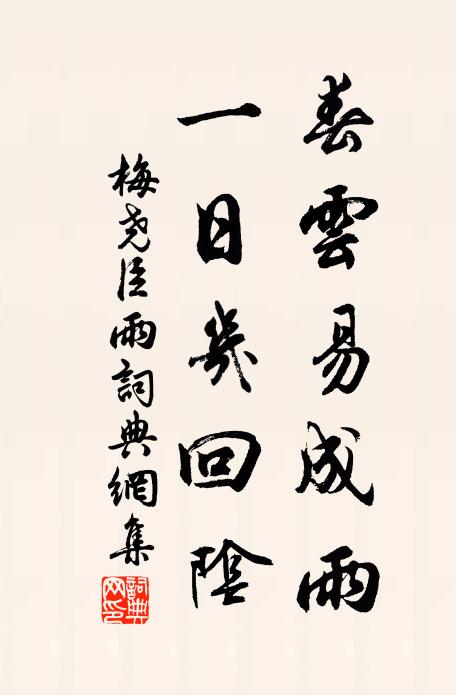 春雲易成雨
一日幾回陰
梅堯臣雨詞典網集
詞典網印